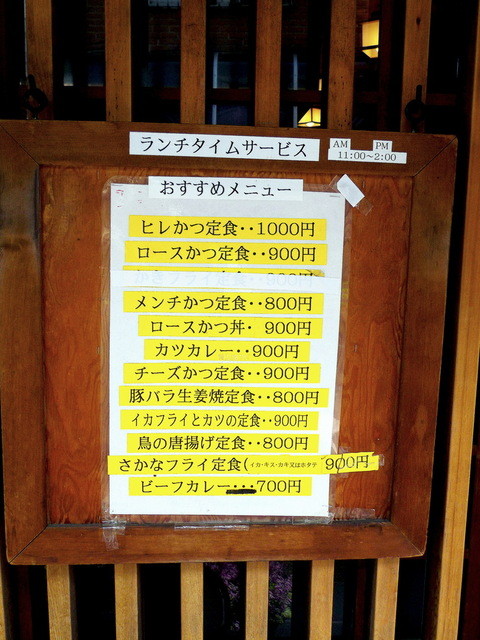 ランチタイムサービス
AM PM
11:00~2:00
おすすめメニュー
ヒレかつ定食‥1000円
ロースかつ定食‥900円
かきフライ定食‥900円
メンチかつ定食‥800円
ロースかつ丼・900円
カツカレー‥900円
チーズかつ定食‥900円
豚バラ生姜焼定食‥800円
イカフライとカツの定食‥900円
鳥の唐揚げ定食‥800円
さかなフライ定食(イカ・キス・カキ又はホタテ 900円
ビーフカレー・・・700円